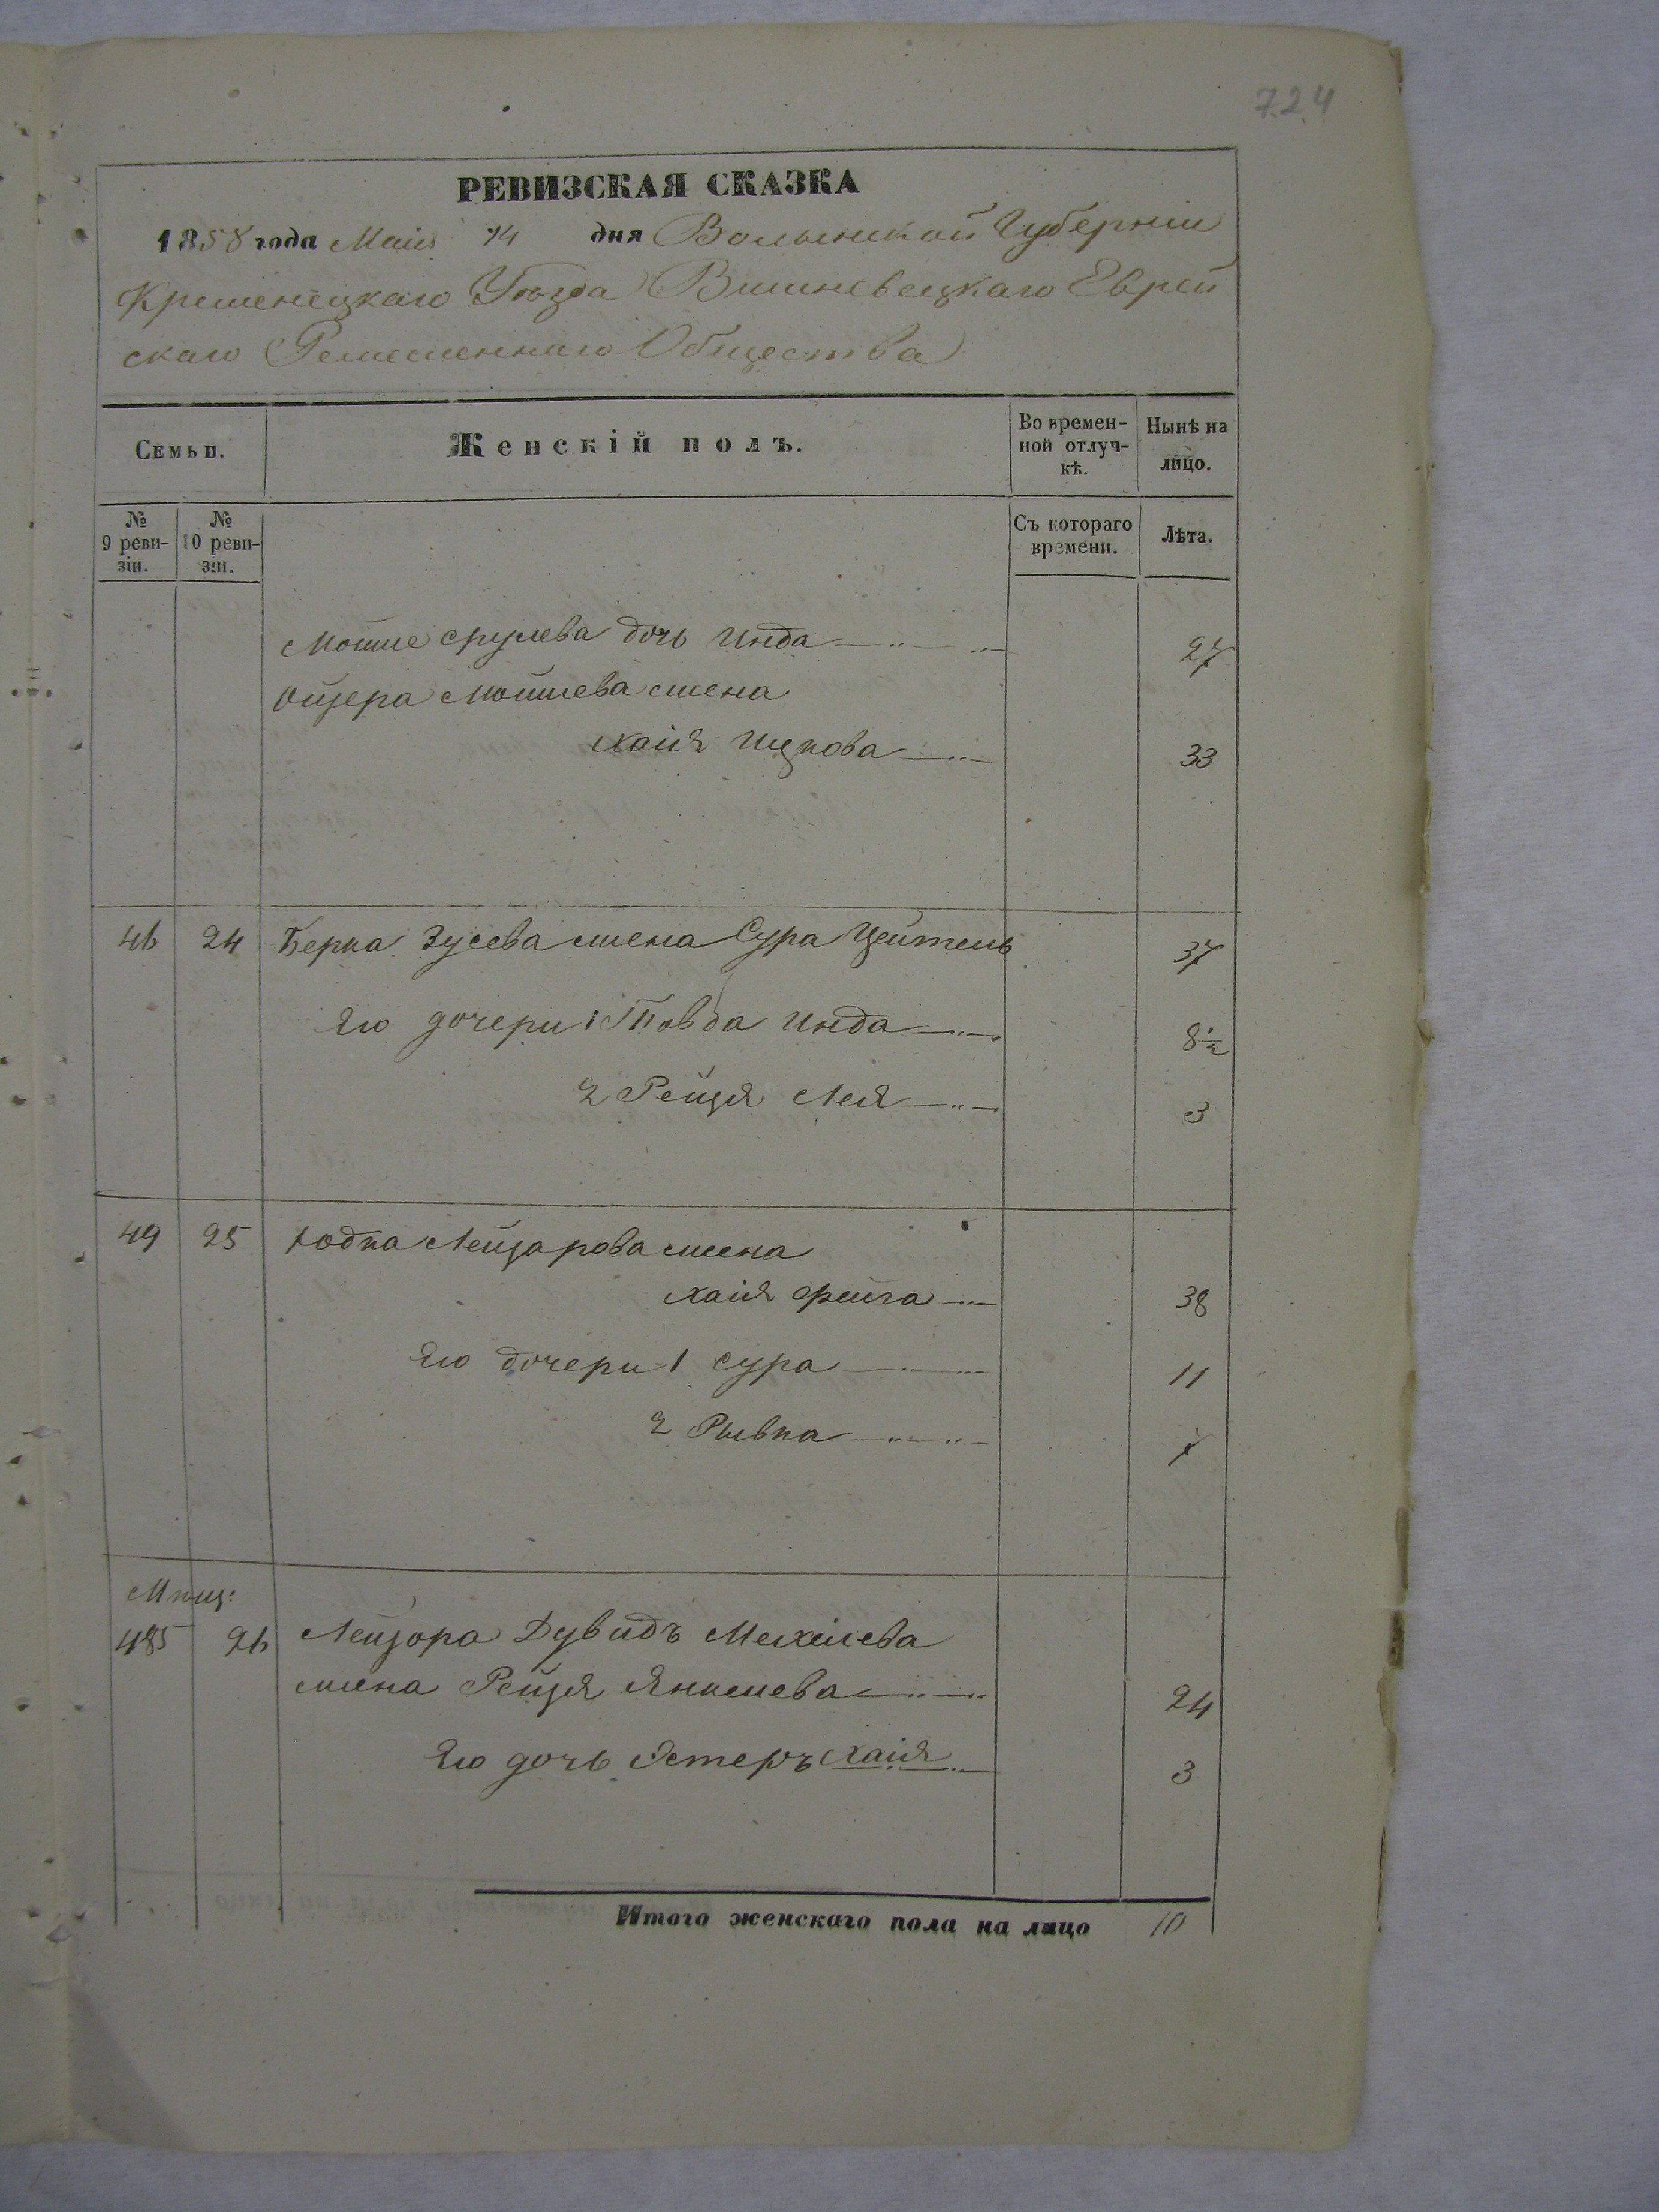 724
РЕВИЗСКАЯ СКАЗКА
1858 года Маія 14 дня Волынской Губерніи
Кременецкаго Уѣзда Вишневецкаго Еврей
скаго Ремесленнаго Общества
Семьи. Женскій полъ. Во времен-
ной отлуч-
кѣ. Нынѣ на
лицо.
№
9 реви-
зіи. №
10 реви-
зіи. Съ котораго
времени. Лѣта.
Мошке Срулева дочь Инда 27
Ойзера Мошкева жена
Хаія Ицкова 33
46 24 Берка Зусева жена Сура Цейтель 37
Его дочери 1 Товба Инда 8½
2 Рейзя Лея 3
49 25 Юдка Лейзарова жена
Хаія Фейга 38
Его дочери 1 Сура 11
2 Рывка 7
Мѣщ:
485 26 Лейзора Дувидъ Мехелева
жена Рейзя Янкелева 24
Его дочь Эстеръ Хаія 3
Итого женскаго пола на лицо 10